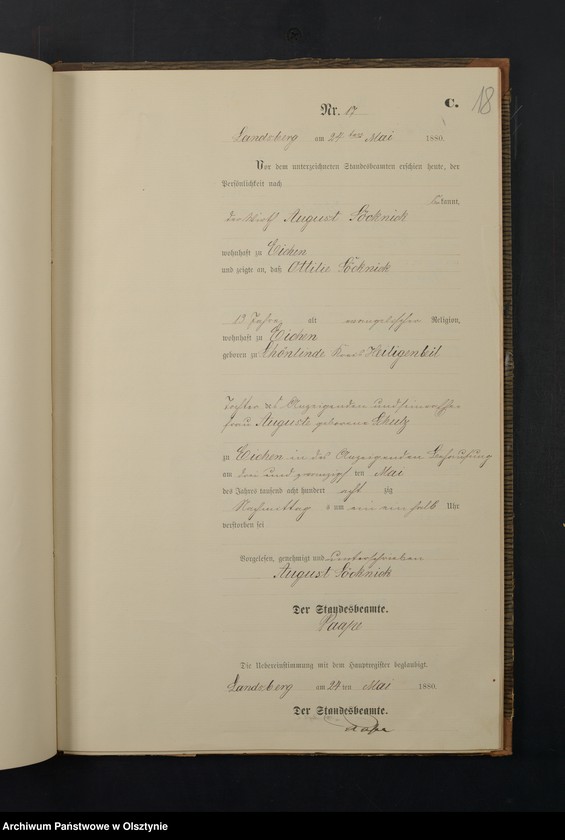 C. 18
Nr. 17
Landsberg am 24ten Mai 1880.
Vor dem unterzeichneten Standesbeamten erschien heute, der
Persönlichkeit nach
kannt,
der Wirth August Böcknick
wohnhaft zu Eichen
und zeigte an, daß Ottilie Böcknick
13 Jahre alt evangelischer Religion,
wohnhaft zu Eichen
geboren zu Schönlinde Kreis Heiligenbeil
Tochter des Anzeigenden und seiner Ehe-
frau Auguste geborene Schulz
zu Eichen in des Anzeigenden Behausung
am drei und zwanzigsten Mai
des Jahres tausend acht hundert acht zig
Nachmittags um ein ein halb Uhr
verstorben sei
Vorgelesen, genehmigt und unterschrieben
August Böcknick
Der Standesbeamte.
Paape
Die Uebereinstimmung mit dem Hauptregister beglaubigt.
Landsberg am 24 ten Mai 1880.
Der Standesbeamte.
Paape
Archiwum Państwowe w Olsztynie